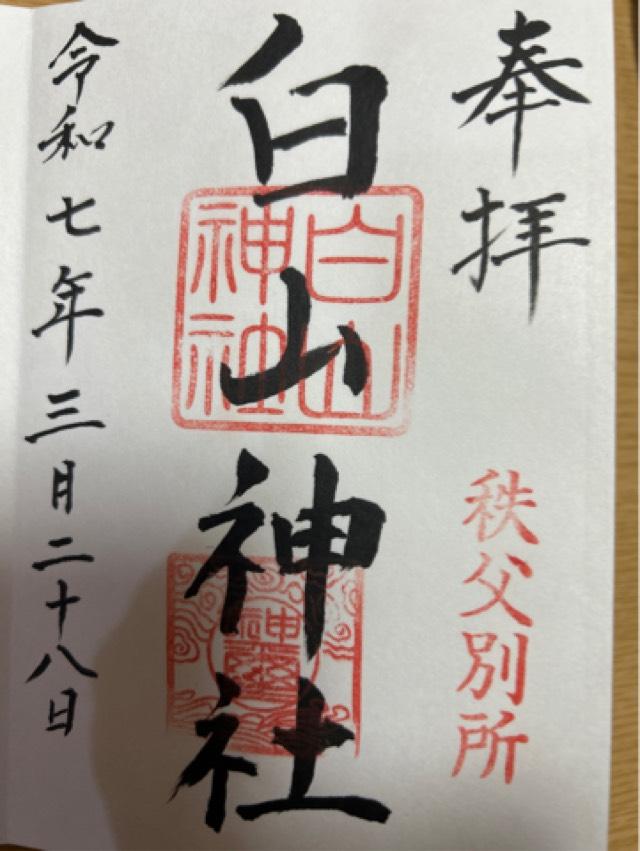 奉拝
秩父別所
白山神社
白山
神社
令和七年三月二十八日